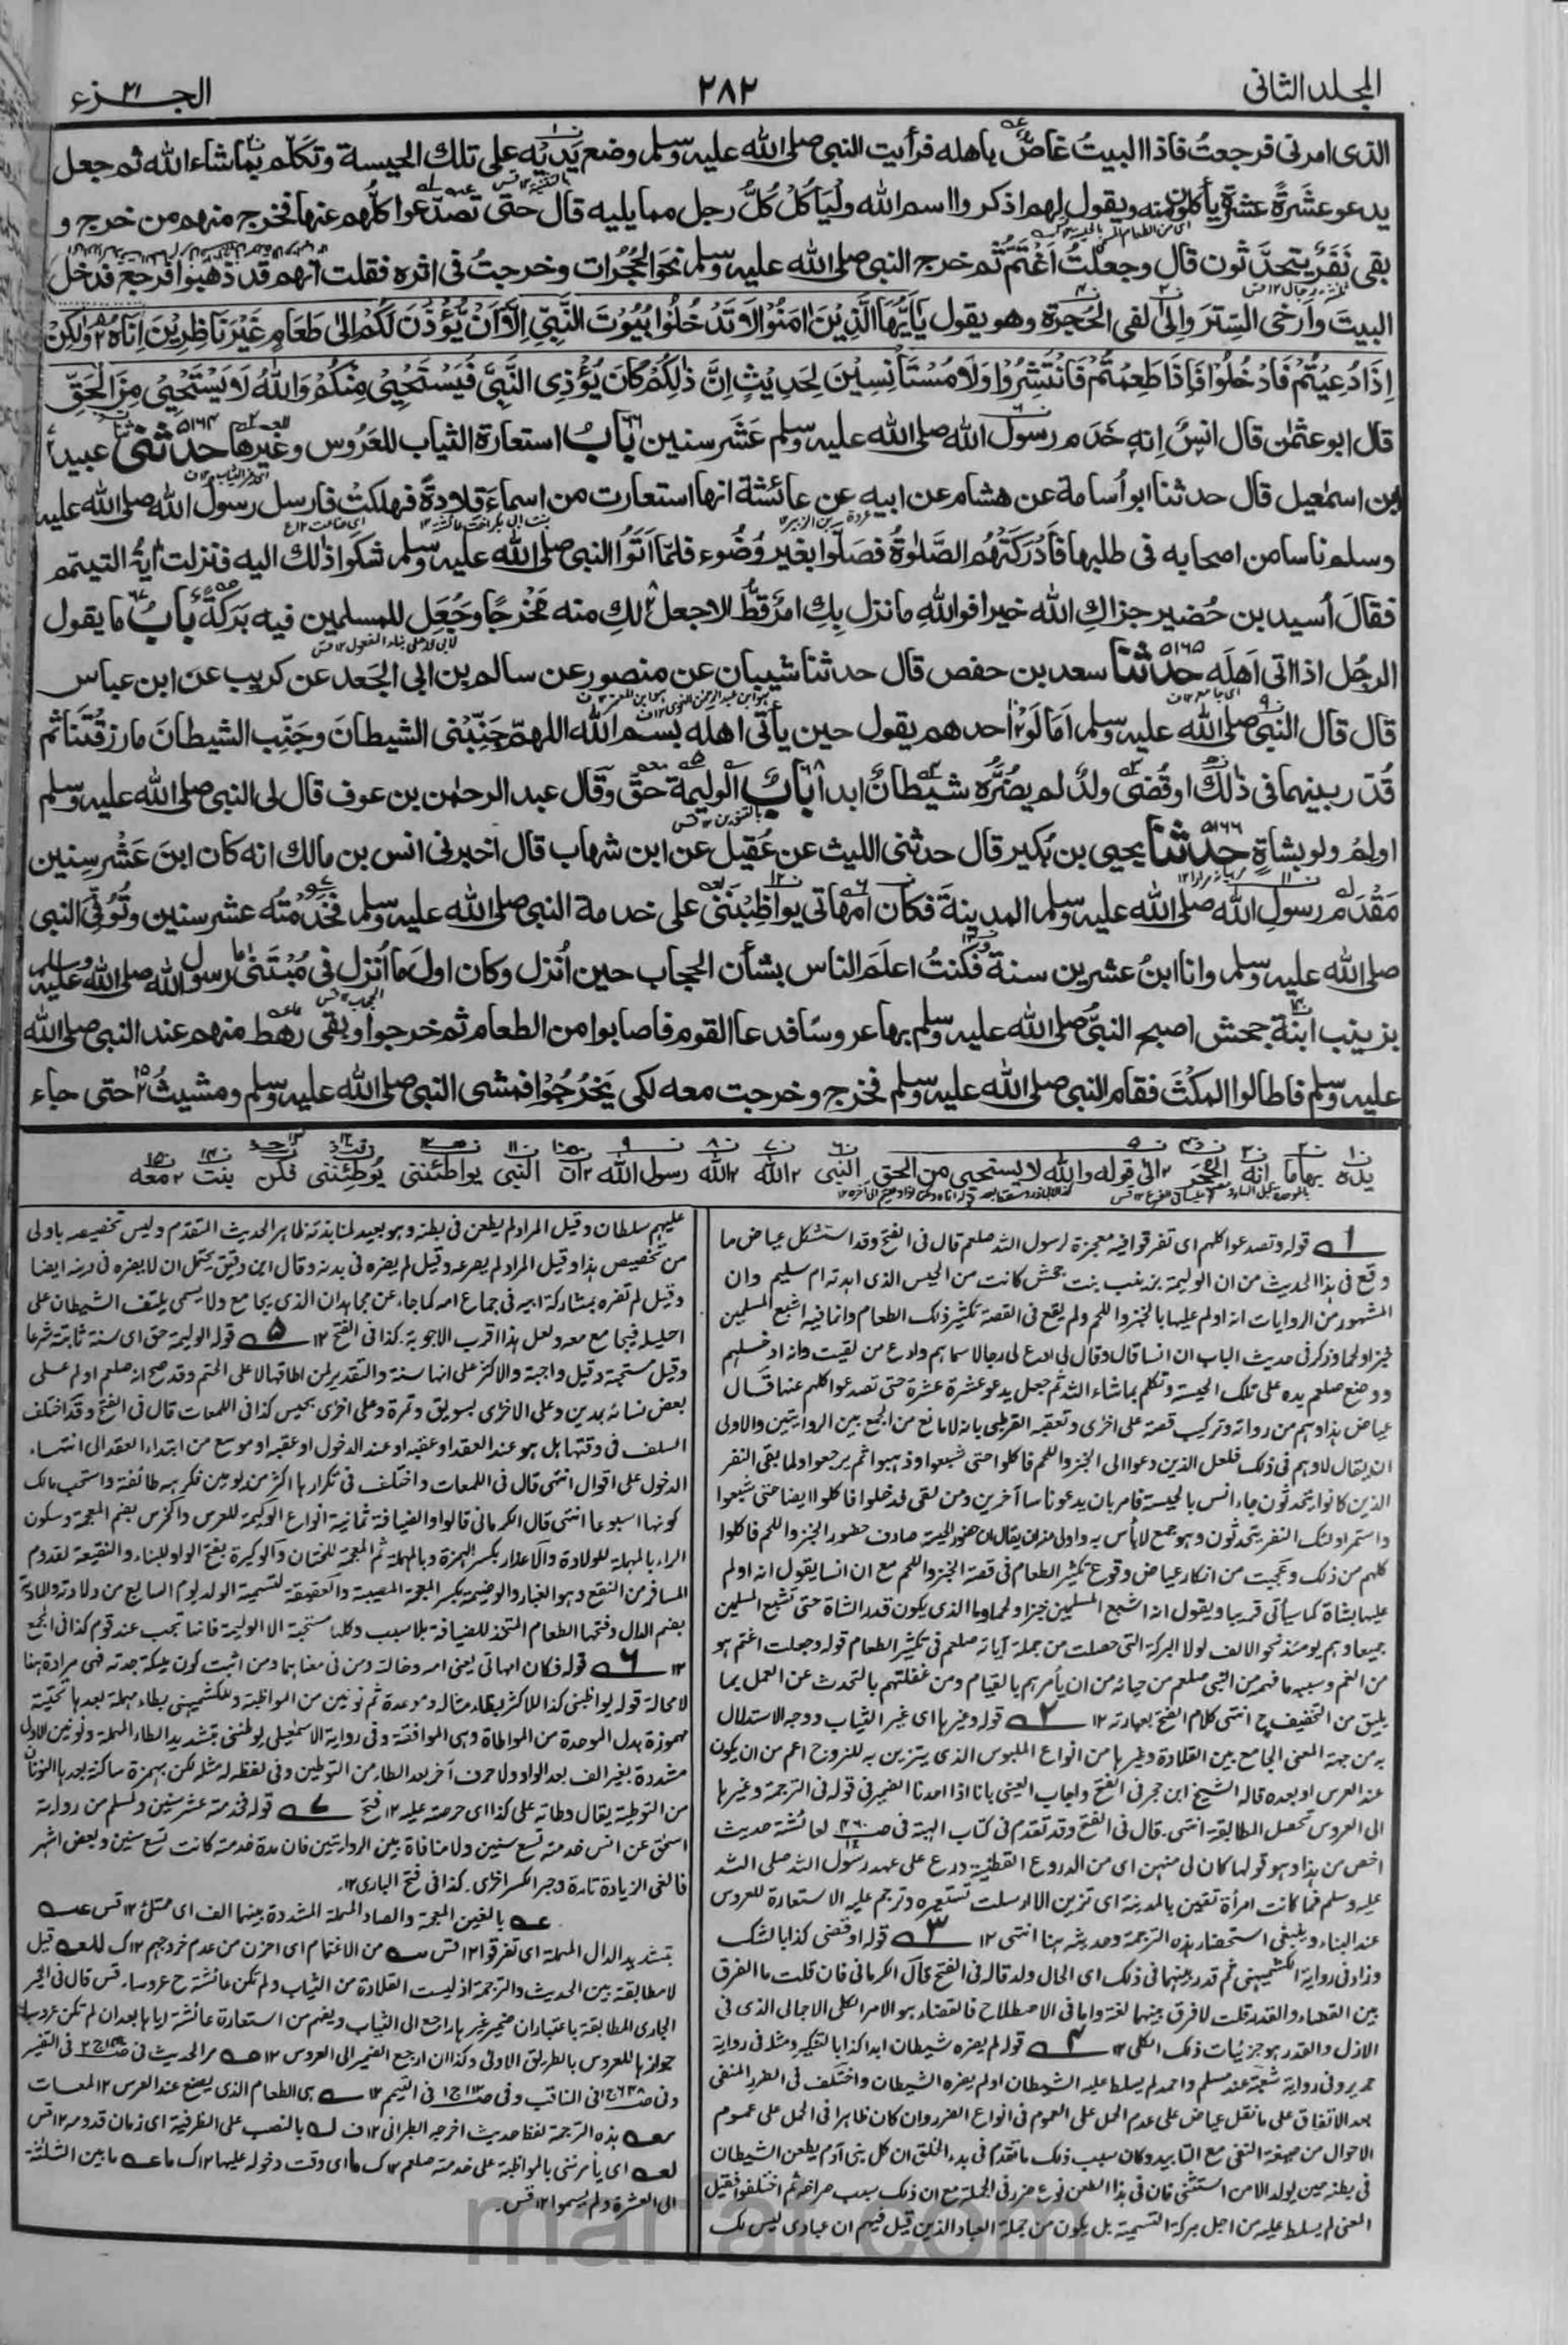 المجلد الثاني
٢٨٢
الجزء ٢١
الذى امرنى فرجعتُ فاذا البيتُ غاصٌّ باهله فرأيت النبى صلى الله عليه وسلم وضع يَدَيْه على تلك الحيسة وتكلّم بماشاء الله ثم جعل
يدعو عشَرةً عشرةً يأكلون منه ويقول لهم اذكروا اسم الله ولْيَأكُلْ كُلُّ رجل مما يليه قال حتى تَصَدَّعوا كلُّهم عنها فخرج منهم من خرج و
بقى نَفَرٌ يتحدّثون قال وجعلتُ اَغْتَمُّ ثم خرج النبى صلى الله عليه وسلم نحو الحُجُرات وخرجتُ فى اثره فقلت انهم قد ذهبوا فرجع فدخل
البيتَ واَرْخى السِّترَ وانى لفى الحُجرة وهو يقول يٰاَيُّهَا الَّذِيْنَ اٰمَنُوْا لَا تَدْخُلُوْا بُيُوْتَ النَّبِىِّ اِلَّا اَنْ يُّؤْذَنَ لَكُمْ اِلٰى طَعَامٍ غَيْرَ نَاظِرِيْنَ اِنَاهُ وَلٰكِنْ
اِذَا دُعِيْتُمْ فَادْخُلُوْا فَاِذَا طَعِمْتُمْ فَانْتَشِرُوْا وَلَا مُسْتَاْنِسِيْنَ لِحَدِيْثٍ اِنَّ ذٰلِكُمْ كَانَ يُؤْذِى النَّبِىَّ فَيَسْتَحْيِىْ مِنْكُمْ وَاللهُ لَا يَسْتَحْيِىْ مِنَ الْحَقِّ
قال ابو عثمٰن قال انسٌ انه خَدَم رسول الله صلى الله عليه وسلم عَشَر سنين بابُ استعارة الثياب للعَرُوس وغيرها حدثنى عبيد
بن اسمٰعيل قال حدثنا ابو اُسامة عن هشام عن ابيه عن عائشة انها استعارت من اسماء قلادةً فهلكت فارسل رسول الله صلى الله عليه
وسلم ناسا من اصحابه فى طلبها فاَدْرَكَتْهُم الصَّلٰوةُ فصَلَّوا بغير وُضُوء فلمّا اَتَوُا النبى صلى الله عليه وسلم شكوا ذٰلك اليه فنزلت اٰيةُ التيمّم
فقالَ اُسيد بن حُضير جزاكِ الله خيرا فواللهِ ما نزل بِكِ امرٌ قطُّ الا جعل لكِ منه مَخْرجًا وجُعِل للمسلمين فيه بَرَكةٌ بابُ ما يقول
الرجُل اذا اتى اَهلَه حدثنا سعد بن حفص قال حدثنا شيبان عن منصور عن سالم بن ابى الجَعد عن كريب عن ابن عباس
قال قال النبى صلى الله عليه وسلم اَمَا لَوْ احدهم يقول حين يأتى اهله بسم الله اللهمّ جَنِّبْنى الشيطانَ وجَنِّبِ الشيطانَ ما رزقتَنا ثم
قُدّر بينهما فى ذٰلك او قُضى ولدٌ لم يضُرَّه شيطانٌ ابدا بابٌ الوليمة حقٌّ وقال عبد الرحمٰن بن عوف قال لى النبى صلى الله عليه وسلم
اولِمْ ولو بشاةٍ حدثنا يحيى بن بُكير قال حدثنى الليث عن عُقيل عن ابن شهاب قال اخبرنى انس بن مالك انه كان ابنَ عَشْر سنين
مَقْدَم رسول الله صلى الله عليه وسلم المدينة فكان امهاتى يواظِبْنَنى على خدمة النبى صلى الله عليه وسلم فخَدَمتُه عشر سنين وتُوُفِّىَ النبى
صلى الله عليه وسلم وانا ابنُ عشرين سنة فكنتُ اعلَم الناس بشأن الحجاب حين اُنزل وكان اولَ ما اُنزل فى مُبْتَنى رسول الله صلى الله عليه وسلم
بزينب ابنة جحش اصبح النبىُّ صلى الله عليه وسلم بها عروسًا فدعا القوم فاصابوا من الطعام ثم خرجوا وبقى رهط منهم عند النبى صلى الله
عليه وسلم فاطالوا المكْثَ فقام النبى صلى الله عليه وسلم فخرج وخرجت معه لكى يَخْرُجُوْا فمشى النبى صلى الله عليه وسلم ومشيتُ حتى جاء
يده بهاما انه الحجر الى قوله والله لا يستحيى من الحق النبى الله الله رسول الله ان النبى يواطئننى يوطئننى فكن بنت معه
قوله وتصدعوا كلهم اى تفرقوا فيه معجزة لرسول الله صلعم قال فى الفتح وقد استشكل عياض ما
وقع فى هذا الحديث من ان الوليمة بزينب بنت جحش كانت من الحيس الذى اهدته ام سليم وان
المشهور من الروايات انه اولم عليها بالخبز واللحم ولم يقع فى القصة تكثير ذلك الطعام وانما فيه اشبع المسلمين
خبزا ولحما وذكر فى حديث الباب ان انسا قال وقال لى ادع لى رجالا سماهم وادع من لقيت وانه ادخلهم
ووضع صلعم يده على تلك الحيسة وتكلم بماشاء الله ثم جعل يدعو عشرة عشرة حتى تصدعوا كلهم عنها قال
عياض هذا وهم من رواته وتركيب قصة على اخرى وتعقبه القرطبى بانه لا مانع من الجمع بين الروايتين والاولى
ان يقال لا وهم فى ذلك فلعل الذين دعوا الى الخبز واللحم فاكلوا حتى شبعوا وذهبوا لم يرجعوا ولما بقى النفر
الذين كانوا يتحدثون جاء انس بالحيسة فامر بان يدعو ناسا آخرين ومن لقى فدخلوا فاكلوا ايضا حتى شبعوا
واستمر اولئك النفر يتحدثون وهو جمع لا بأس به واولى منه ان يقال ان حضور الحيسة صادف حضور الخبز واللحم فاكلوا
كلهم من ذلك وعجبت من انكار عياض وقوع تكثير الطعام فى قصة الخبز واللحم مع ان انسا يقول انه اولم
عليها بشاة كما سيأتى قريبا ويقول انه اشبع المسلمين خبزا ولحما وما الذى يكون قدر الشاة حتى تشبع المسلمين
جميعا وهم يومئذ نحو الالف لولا البركة التى حصلت من جملة آياته صلعم فى تكثير الطعام قوله وجعلت اغتم هو
من الغم وسببه ما فهمه من النبى صلعم من حيائه من ان يأمرهم بالقيام ومن غفلتهم بالتحدث عن العمل بما
يليق من التخفيف ح انتهى كلام الفتح بعبارته ١٢ ٢ قوله وغيرها اى غير الثياب ووجه الاستدلال
به من جهة المعنى الجامع بين القلادة وغيرها من انواع الملبوس الذى يتزين به للزوج اعم من ان يكون
عند العرس او بعده قاله الشيخ ابن حجر فى الفتح واجاب العينى بانا اذا اعدنا الضمير فى قوله فى الترجمة وغيرها
الى العروس تحصل المطابقة انتهى. قال فى الفتح وقد تقدم فى كتاب الهبة فى صـ لعائشة حديث
اخص من هذا وهو قولها كان لى منهن اى من الدروع القطنية درع على عهد رسول الله صلى الله
عليه وسلم فما كانت امرأة تقين بالمدينة اى تزين الا ارسلت تستعيره وترجم عليه الاستعارة للعروس
عند البناء وينبغى استحضار هذه الترجمة وحديثه هنا انتهى ١٢ ٣ قوله او قضى كذا بالشك
وزاد فى رواية الكشميهنى ثم قدر بينهما فى ذلك اى الحال ولد قاله فى الفتح قال الكرمانى فان قلت ما الفرق
بين القضاء والقدر قلت لا فرق بينهما لغة واما فى الاصطلاح فالقضاء هو الامر الكلى الاجمالى الذى فى
الازل والقدر هو جزئيات ذلك الكلى ١٢ ٤ قوله لم يضره شيطان ابدا كذا بالتنكير ومثله فى رواية
جرير وفى رواية شعبة عند مسلم واحمد لم يسلط عليه الشيطان او لم يضره الشيطان واختلف فى الضرر المنفى
بعد الاتفاق على ما نقل عياض على عدم الحمل على العموم فى انواع الضرر وان كان ظاهرا فى الحمل على عموم
الاحوال من صيغة النفى مع التابيد وكان سبب ذلك ما تقدم فى بدء الخلق ان كل بنى آدم يطعن الشيطان
فى بطنه حين يولد الا من استثنى فان فى هذا الطعن نوع ضرر فى الجملة مع ان ذلك سبب صراخه ثم اختلفوا فقيل
المعنى لم يسلط عليه من اجل بركة التسمية بل يكون من جملة العباد الذين قيل فيهم ان عبادى ليس لك
عليهم سلطان وقيل المراد لم يطعن فى بطنه وهو بعيد لمنابذته ظاهر الحديث المتقدم وليس تخصيصه باولى
من تخصيص هذا وقيل المراد لم يصرعه وقيل لم يضره فى بدنه وقال ابن دقيق يحتمل ان لا يضره فى دينه ايضا
وقيل لم يضره بمشاركة ابيه فى جماع امه كما جاء عن مجاهد ان الذى يجامع ولا يسمى يلتف الشيطان على
احليله فيجامع معه ولعل هذا اقرب الاجوبة. كذا فى الفتح ١٢ ٥ قوله الوليمة حق اى سنة ثابتة شرعا
وقيل مستحبة وقيل واجبة والاكثر على انها سنة والتقدير لمن اطاقها لا على الحتم وقد صح انه صلعم اولم على
بعض نسائه بمدين وعلى الاخرى بسويق وتمرة وعلى اخرى بحيس كذا فى اللمعات قال فى الفتح وقد اختلف
السلف فى وقتها هل هو عند العقد او عقبه او عند الدخول او عقبه او موسع من ابتداء العقد الى انتهاء
الدخول على اقوال انتهى قال فى اللمعات واختلف فى تكرارها اكثر من يومين فكرهه طائفة واستحب مالك
كونها اسبوعا انتهى قال الكرمانى قالوا والضيافة ثمانية انواع الوليمة للعرس والخرس بضم المعجمة وسكون
الراء بالمهملة للولادة والاعذار بكسر الهمزة وبالمهملة ثم المعجمة للختان والوكيرة بفتح الواو للبناء والنقيعة لقدوم
المسافر من النقع وهو الغبار والوضيمة بكسر المعجمة المصيبة والعقيقة لتسمية الولد يوم السابع من ولادته والمادبة
بضم الدال وفتحها الطعام المتخذ للضيافة بلا سبب وكلها مستحبة الا الوليمة فانها تجب عند قوم كذا فى المجمع
١٢ ٦ قوله فكان امهاتى يعنى امه وخالته ومن فى معناهما ومن اثبت كون مليكة جدته فهى مرادة هنا
لا محالة قوله يواظبنى كذا للاكثر بظاء مشالة وموحدة ثم نونين من المواظبة وللكشميهنى بطاء مهملة بعدها تحتية
مهموزة بدل الموحدة من المواطاة وهى الموافقة وفى رواية الاسمعيلى يوطننى بتشديد الطاء المهملة ونونين الاولى
مشددة بغير الف بعد الواو ولا حرف آخر بعد الطاء من التوطين وفى لفظ له مثله لكن بهمزة ساكنة بعدها النونان
من التوطئة يقال وطاته على كذا اى حرصته عليه ١٢ فتح ٧ قوله فخدمته عشر سنين ولمسلم من رواية
اسحق عن انس خدمته تسع سنين ولا منافاة بين الروايتين فان مدة خدمته كانت تسع سنين وبعض اشهر
فالغى الزيادة تارة وجبر الكسر اخرى. كذا فى فتح البارى ١٢.
بالغين المعجمة والصاد المهملة المشددة بينهما الف اى ممتلئ ١٢ قس
بتشديد الدال المهملة اى تفرقوا ١٢ قس من الاغتمام اى احزن من عدم خروجهم ١٢ ك قيل
لا مطابقة بين الحديث والترجمة اذ ليست القلادة من الثياب ولم تكن عائشة ح عروسا. قس قال فى الخير
الجارى المطابقة باعتبار ان ضمير غيرها راجع الى الثياب ويفهم من استعارة عائشة اياها بعد ان لم تكن عروسا
جوازها للعروس بالطريق الاولى وكذا ان ارجع الضمير الى العروس ١٢ مر الحديث فى فى التفسير
وفى فى المناقب وفى فى التيمم ١٢ هى الطعام الذى يصنع عند العرس ١٢ لمعات
هذه الترجمة لفظ حديث اخرجه الطبرانى ١٢ ف بالنصب على الظرفية اى زمان قدومه ١٢ قس
اى يأمرننى بالمواظبة على خدمته صلعم ١٢ ك اى وقت دخوله عليها ١٢ ك ما بين الثلثة
الى العشرة ولم يسموا ١٢ قس.
marfat.com